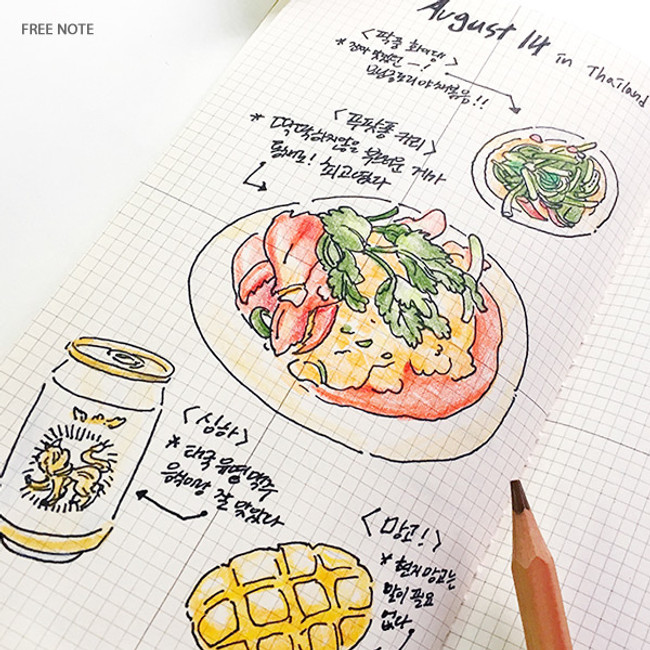 FREE NOTE
August 14 in Thailand
<팍풍 화이댕>
* 진짜 맛있던 —!
모닝글로리 야채볶음!!
<푸팟퐁 커리>
* 딱딱하지않은 부드러운 게가
통째로! 최고였다
<싱하>
* 태국 유명맥주
음식이랑 잘 맞았다
<망고!>
* 현지망고는
말이 필요
없다